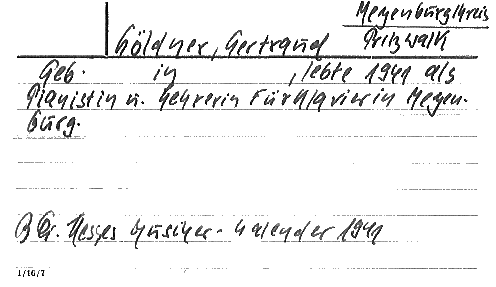 Meyenburg/Kreis
Pritzwalk
Göldner, Gertraud
Geb. in , lebte 1941 als
Pianistin u. Lehrerin für Klavier in Meyen-
burg.
B Dr. Hesses Musiker-Kalender 1941
1/16/7